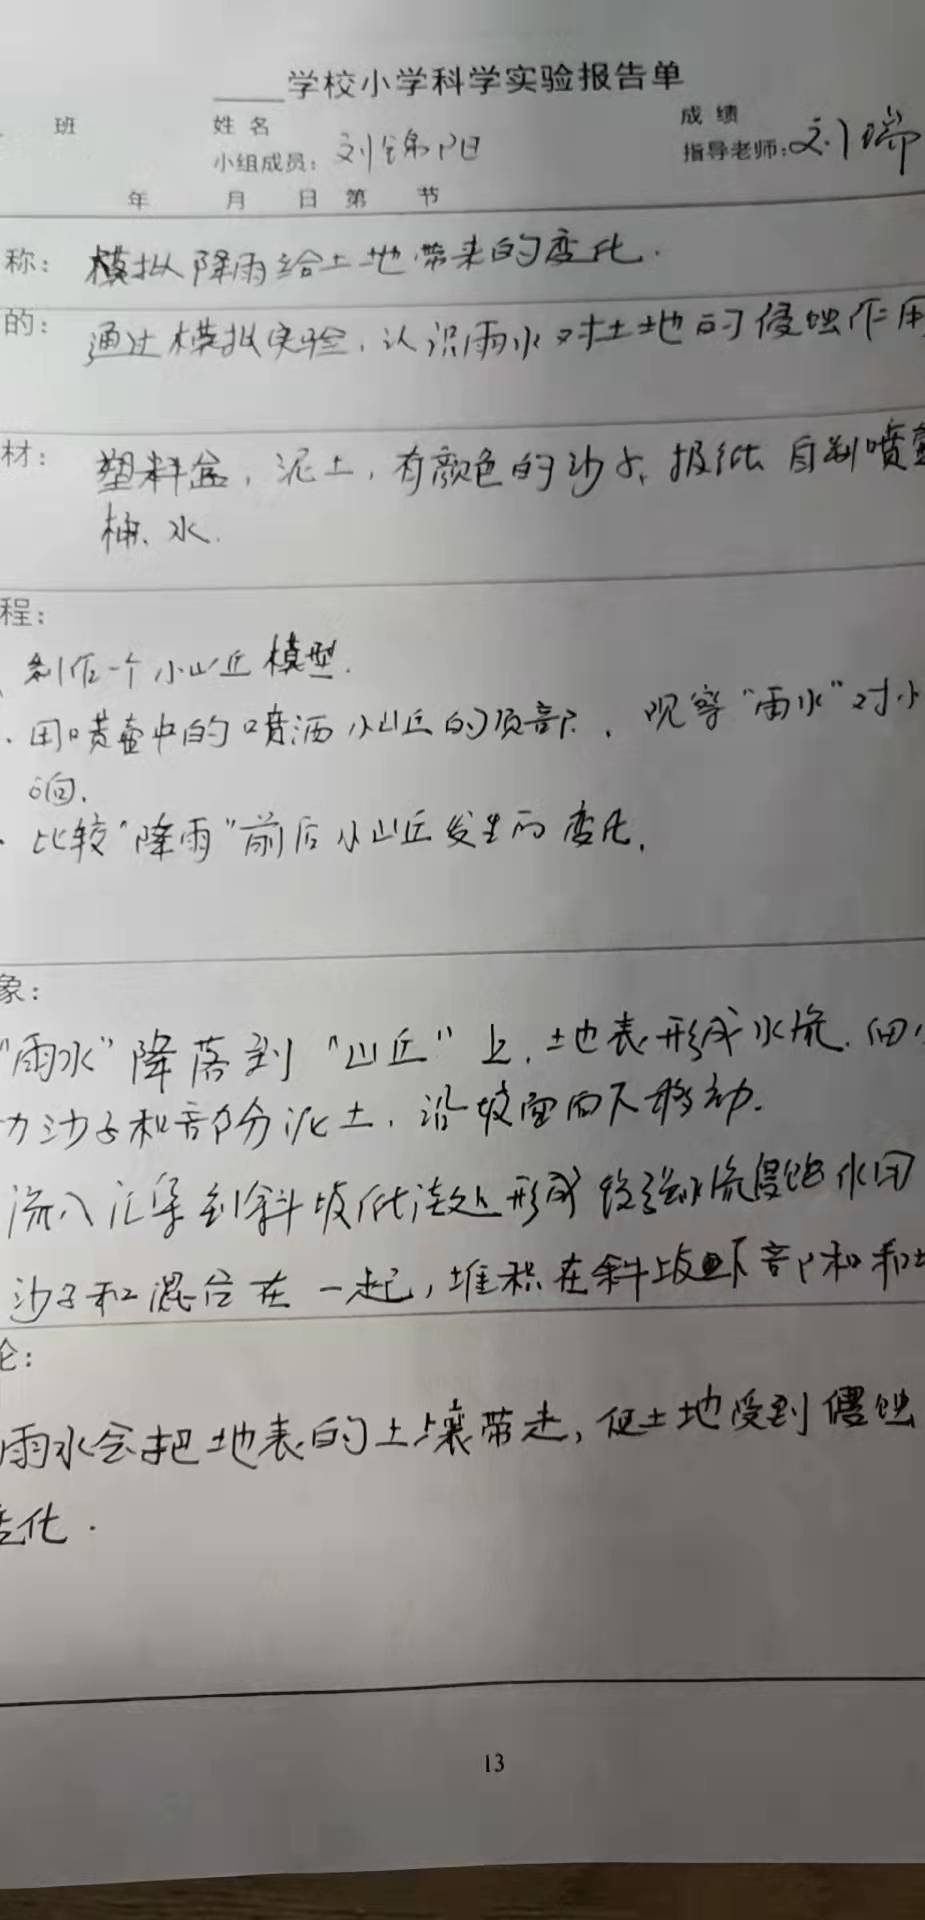 学校小学科学实验报告单
班 姓名 成绩
小组成员: 刘锦阳 指导老师: 刘瑞
年 月 日 第 节
称: 模拟降雨给土地带来的变化.
的: 通过模拟实验,认识雨水对土地的侵蚀作用
材: 塑料盒,泥土,有颜色的沙子、报纸 自制喷
水.
程:
制作一个小山丘模型.
用喷壶中的喷洒小山丘的顶部,观察“雨水”对小
响.
比较“降雨”前后小山丘发生的变化.
象:
“雨水”降落到“山丘”上,土地表形成水流.
沙子和部分泥土,沿坡面向下移动.
流入汇集到斜坡低洼处形成
沙子和混合在一起,堆积在斜坡下部和
论:
雨水会把地表的土壤带走,使土地受到侵蚀
变化.
13